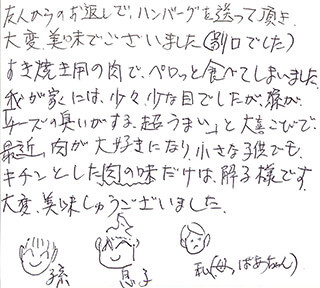 友人からのお返しで、ハンバーグを送って頂き
大変、美味でございました(別口でした)
すき焼き用の肉で、ペロッと食べてしまいました
我が家には、少々、少な目でしたが、孫が、
チーズの臭いがする、超うまい」と大喜こびで、
最近、肉が大好きになり、小さな子供でも、
キチンとした肉の味だけは、解る様です。
大変、美味しゅうございました。
孫
息子
私(ばあちゃん)